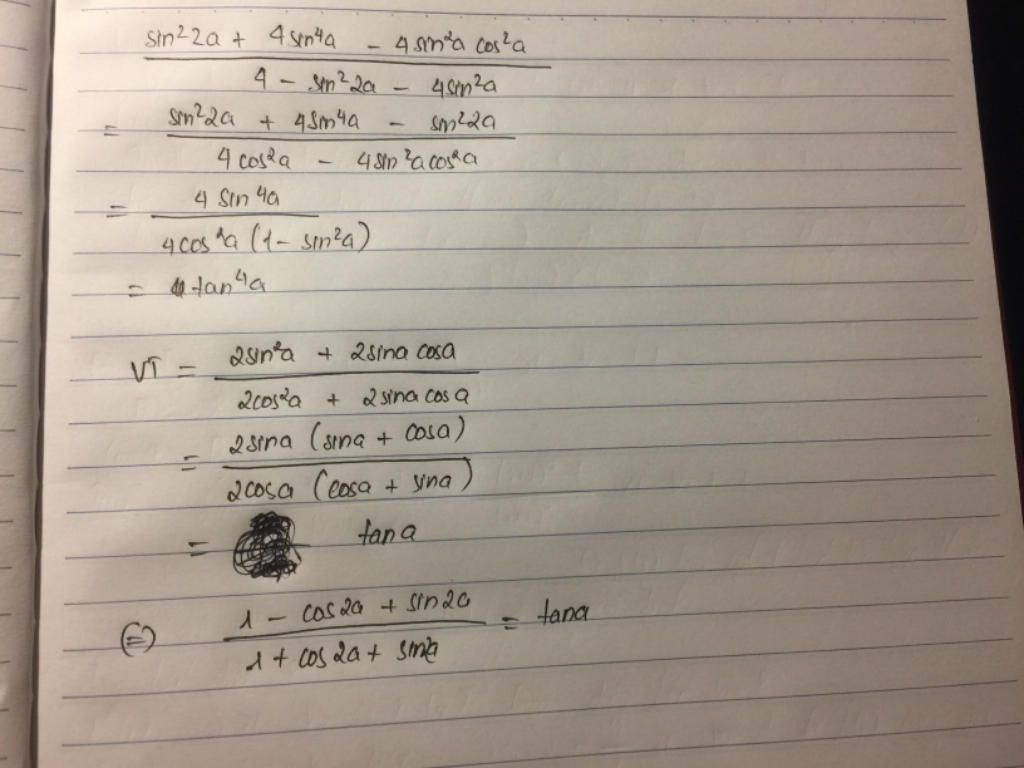 sin²2a + 4sin⁴a − 4sin²a cos²a
4 − sin²2a − 4sin²a
= sin²2a + 4sin⁴a − sin²2a
4cos²a − 4sin²a cos²a
= 4 sin⁴a
4cos²a (1 − sin²a)
= tan⁴a
VT = 2sin²a + 2sina cosa
2cos²a + 2sina cosa
= 2sina (sina + cosa)
2cosa (cosa + sina)
= tana
(=) 1 − cos2a + sin2a = tana
1 + cos2a + sin2a